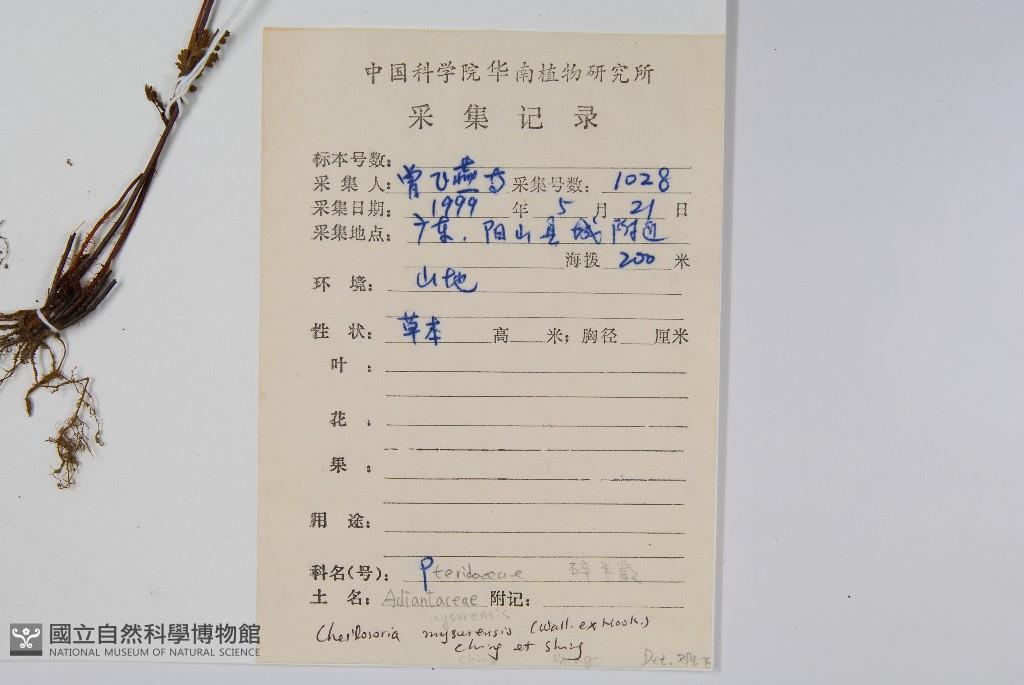 中国科学院华南植物研究所
采集记录
标本号数:
采集人: 曾飞燕等 采集号数: 1028
采集日期: 1999 年 5 月 21 日
采集地点: 广东, 阳山县城附近
海拨 200 米
环境: 山地
性状: 草本 高 米; 胸径 厘米
叶:
花.
果:
用途:
科名(号): Pteridaceae 碎米蕨
土名: Adiantaceae 附记:
mysurensis
Cheilosoria mysurensis (Wall. ex Hook.)
Ching et Shing
ching shing
Det.
國立自然科學博物館
NATIONAL MUSEUM OF NATURAL SCIENCE